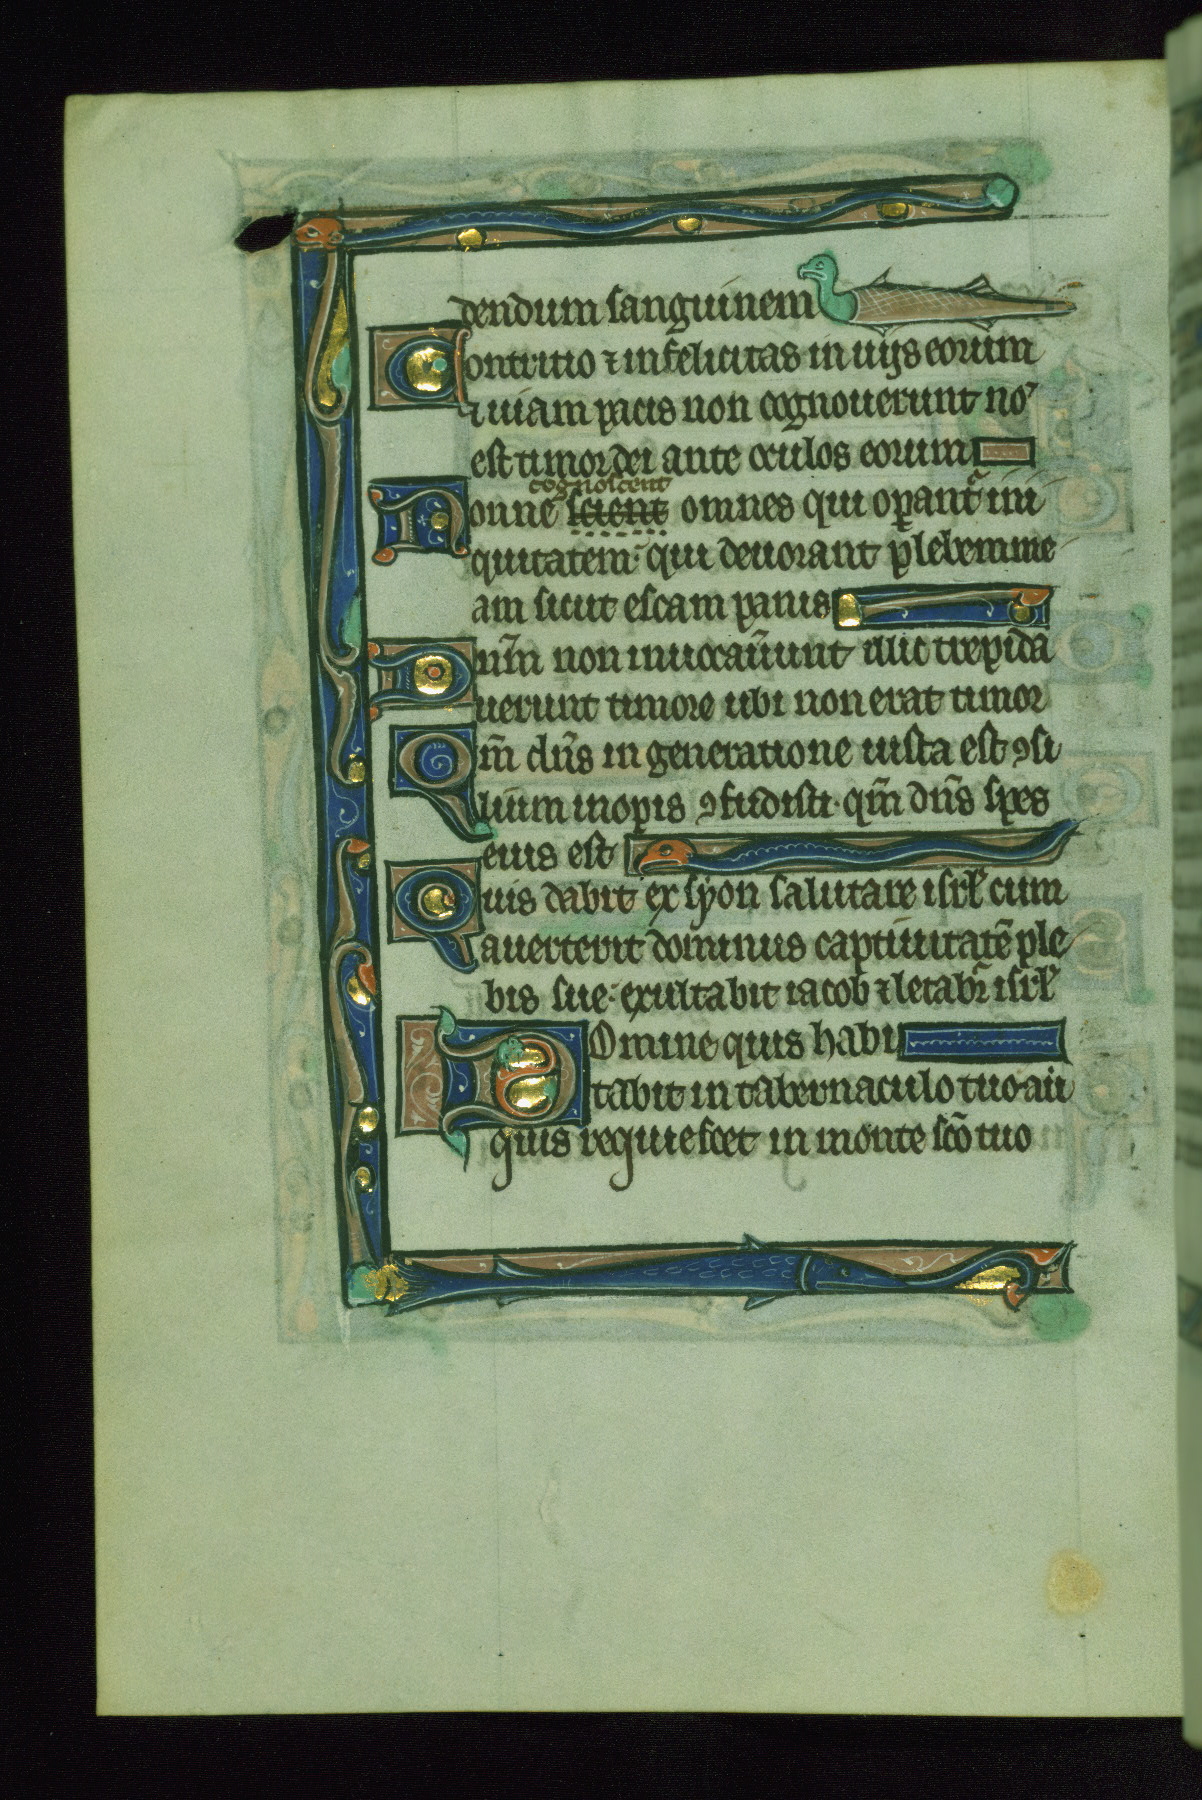 dendum sanguinem
Contritio ⁊ infelicitas in uijs eorum
⁊ uiam pacis non cognouerunt no᷒
est timor dei ante oculos eorum
cognoscent
Nonne scient omnes qui op̲ant᷑ ini
quitatem· qui deuorant plebem me
am sicut escam panis
Dn̄m non inuocau̅unt illic trepida
uerunt timore ubi non erat timor
Qm̄ dn̄s in generatione iusta est ꝯsi
lium inopis ꝯfudisti· qm̄ dn̄s spes
eius est
Quis dabit ex syon salutare isrl̓ cum
auerterit dominus captiuitatē ple
bis sue· exultabit iacob ⁊ letabr̄ isrl̓
Domine quis habi
tabit in tabernaculo tuo· aū
quis requiescet in monte sc̄o tuo